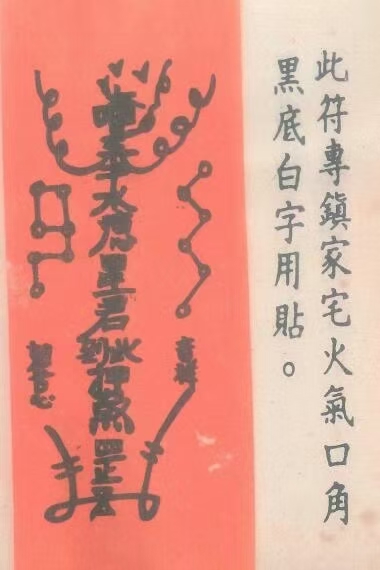 此符專鎮家宅火氣口角
黑底白字用貼。
奉水德星君到此押煞罡